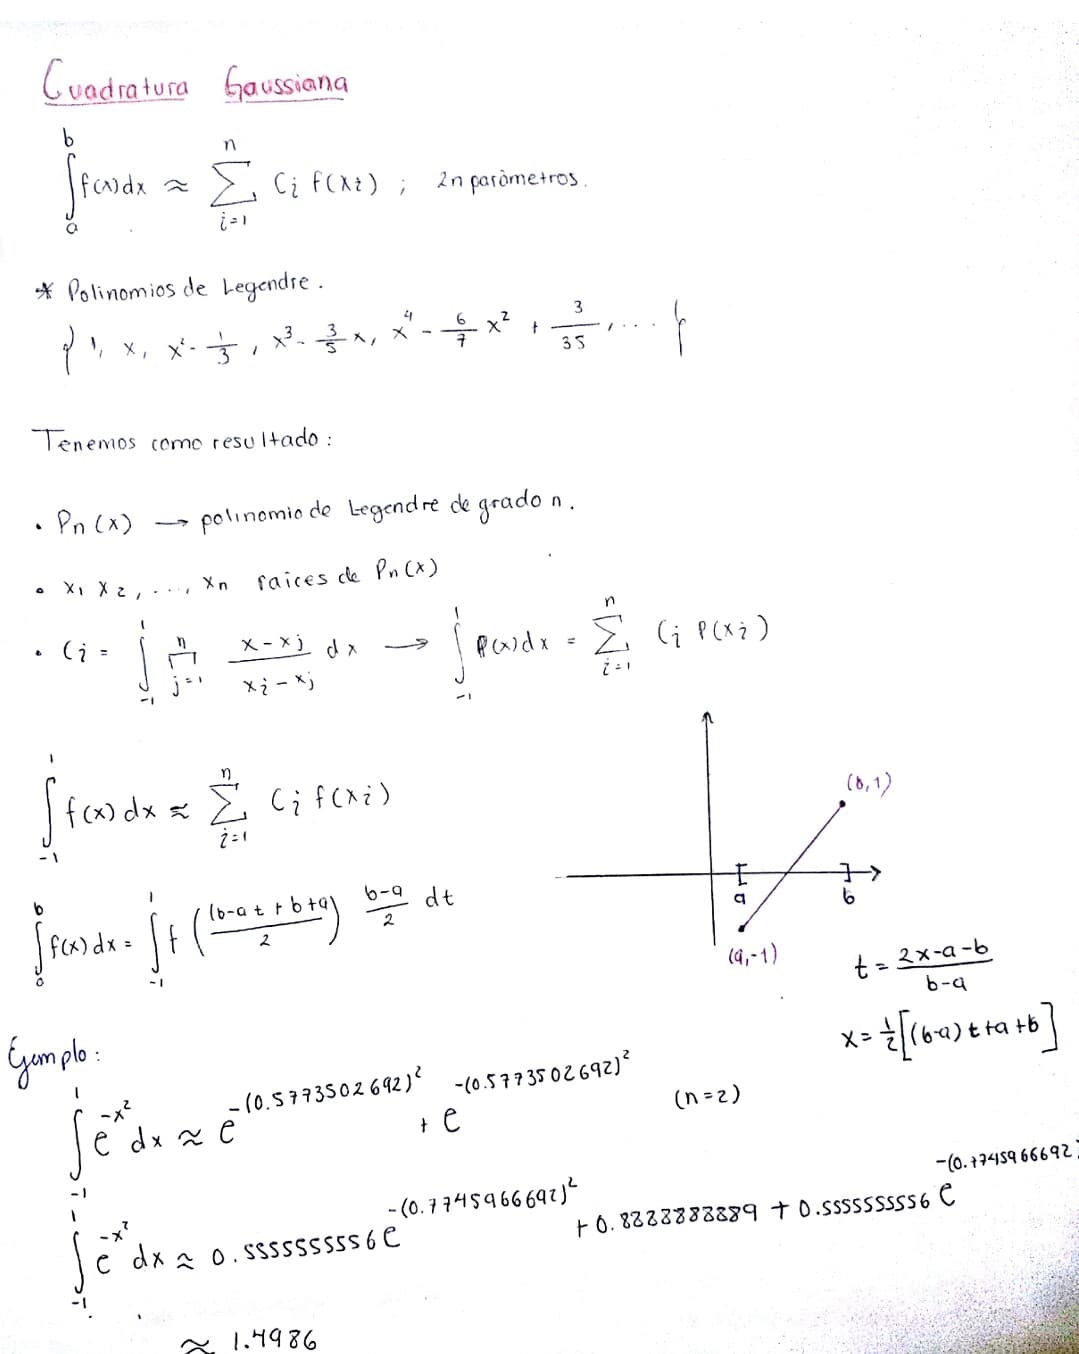 Cuadratura Gaussiana
∫_a^b f(x)dx ≈ ∑_{i=1}^n C_i f(x_i) ; 2n parámetros.
* Polinomios de Legendre.
{ 1, x, x² - 1/3, x³ - 3/5 x, x⁴ - 6/7 x² + 3/35, .... }
Tenemos como resultado:
• Pn(x) → polinomio de Legendre de grado n.
• x₁ x₂, ..., xn raices de Pn(x)
• C_i = ∫_{-1}^1 ∏_{j=1}^n (x-x_j)/(x_i-x_j) dx → ∫_{-1}^1 P(x)dx = ∑_{i=1}^n C_i P(x_i)
∫_{-1}^1 f(x) dx ≈ ∑_{i=1}^n C_i f(x_i)
(b,1)
a b
(a,-1)
∫_a^b f(x) dx = ∫_{-1}^1 f( ((b-a t + b+a)/2 ) (b-a)/2 dt
t = (2x-a-b)/(b-a)
x = 1/2 [(b-a) t + a + b]
Ejemplo:
∫_{-1}^1 e^{-x²} dx ≈ e^{-(0.5773502692)²} + e^{-(0.5773502692)²} (n=2)
∫_{-1}^1 e^{-x²} dx ≈ 0.5555555556 e^{-(0.7745966692)²} + 0.8888888889 + 0.5555555556 e^{-(0.7745966692)
≈ 1.4986